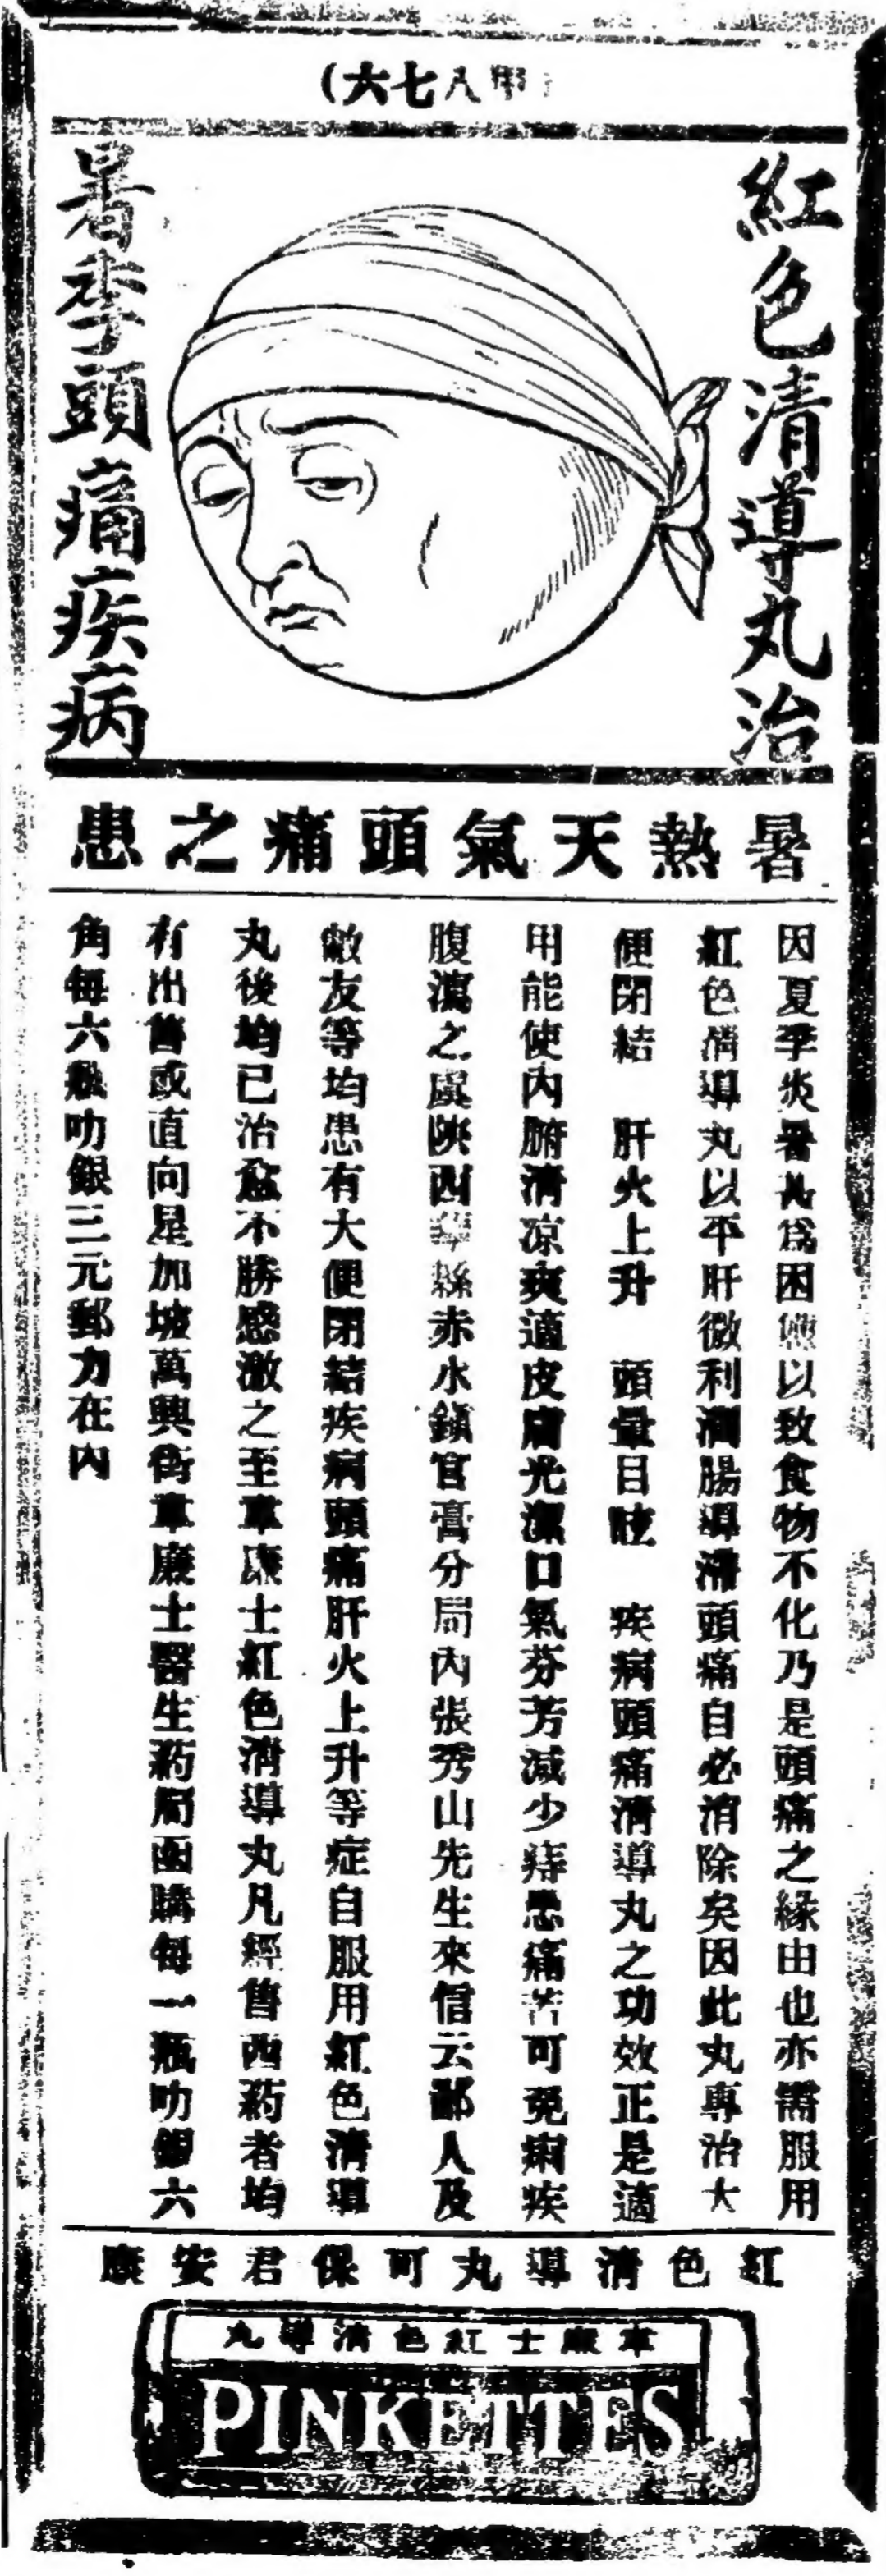 (六七八甲
紅色清導丸治
暑季頭痛疾病
暑熱天氣頭痛之患
因夏季炎暑為困以致食物不化乃是頭痛之緣由也亦需服用
紅色清導丸以平肝微利潤腸導滯頭痛自必消除矣因此丸專治大
便閉結 肝火上升 頭暈目眩 疾病頭痛清導丸之功效正是適
用能使內腑清凉爽適皮膚光潔口氣芬芳減少痔患痛苦可免痢疾
腹瀉之虞陝西華縣赤水鎮官膏分局內張秀山先生來信云鄙人及
敝友等均患有大便閉結疾病頭痛肝火上升等症自服用紅色清導
丸後均已治愈不勝感激之至韋廉士紅色清導丸凡經售西葯者均
有出售或直向星加坡萬興街韋廉士醫生葯局函購每一瓶叻銀六
角每六瓶叻銀三元郵力在內
紅色清導丸可保君安康
韋廉士紅色清導丸
PINKETTES